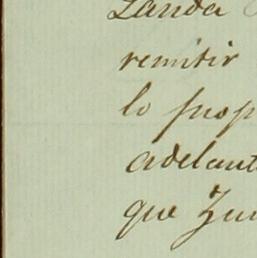 Landa
remitir
lo prop
adelant
que Zu